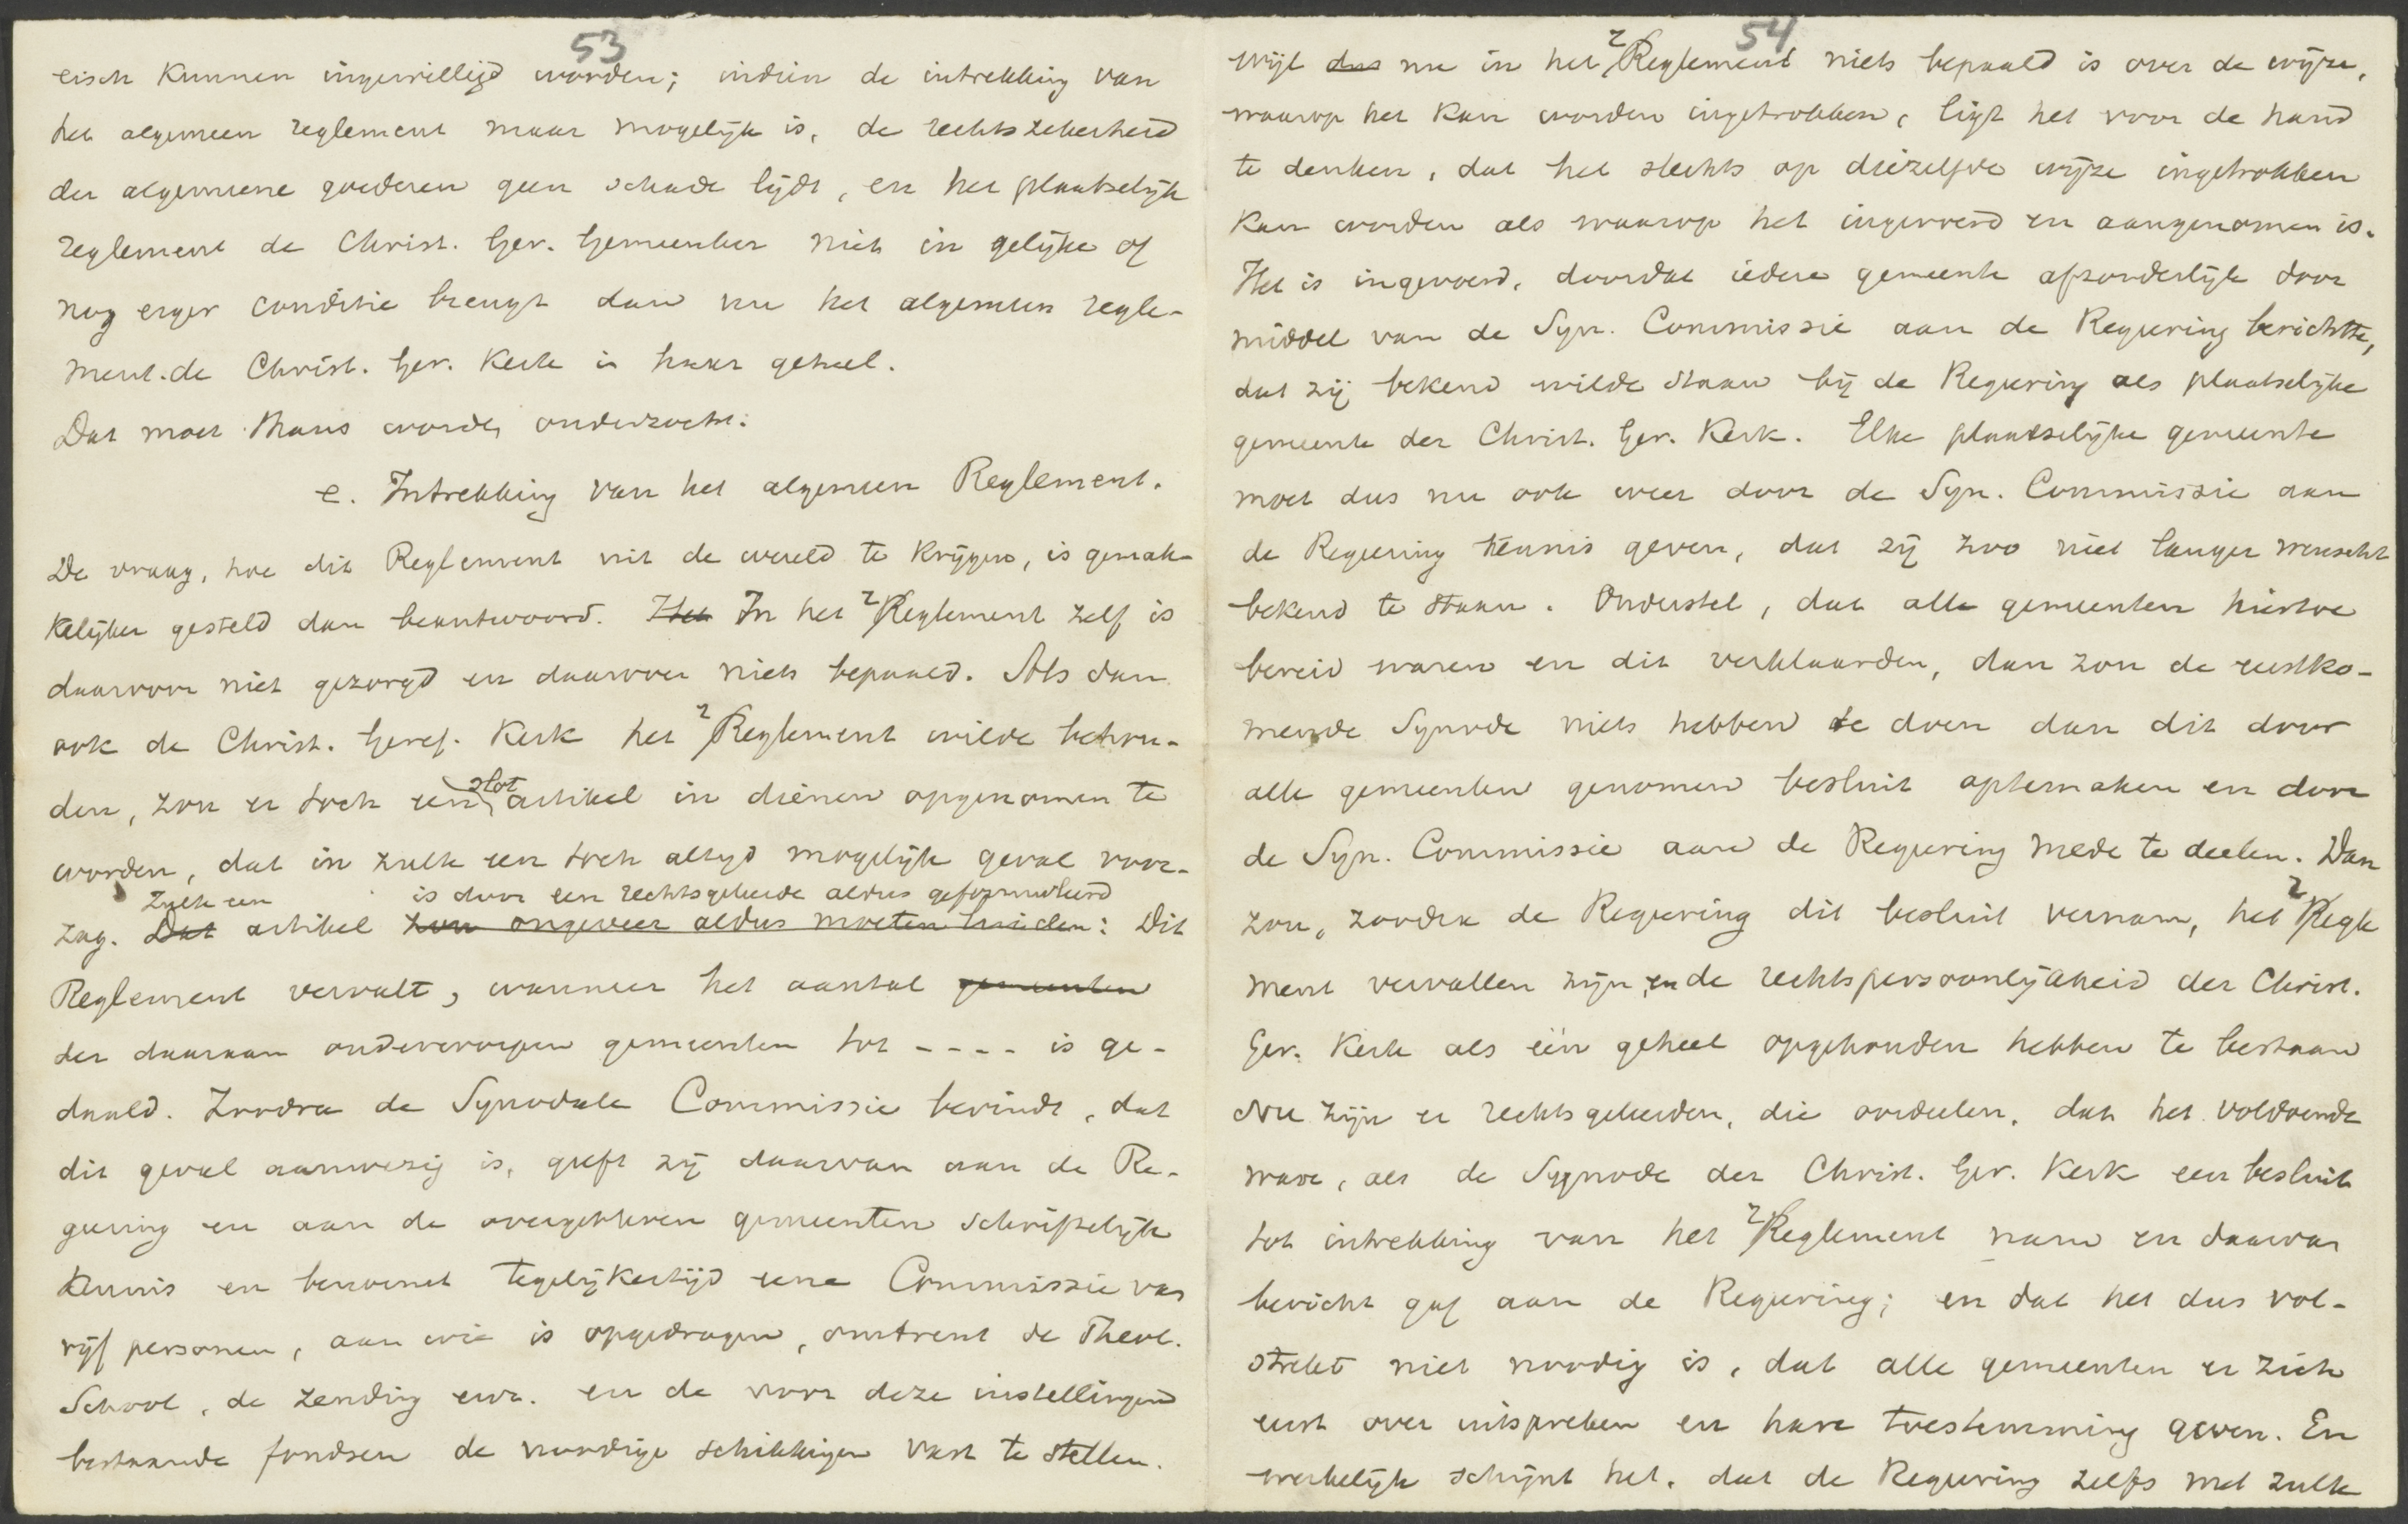 53
eisch kunnen ingewilligd worden; indien de intrekking van
het algemeen reglement maar mogelijk is, de rechtszekerheid
der algemeene goederen geen schade lijdt, en het plaatselijk
reglement de Christ. Ger. Gemeenten niet in gelijke of
nog erger conditie brengt dan nu het algemeen regle-
ment de Christ. Ger. Kerk in haar geheel.
Dat moet thans worden onderzocht.
e. Intrekking van het algemeen Reglement.
De vraag, hoe dit Reglement uit de wereld te krijgen, is gemak-
kelijker gesteld dan beantwoord. Het In het Reglement zelf is
daarvoor niet gezorgd en daarover niets bepaald. Als dan
ook de Christ. Geref. Kerk het Reglement wilde behou-
den, zou er toch een slot artikel in dienen opgenomen te
worden, dat in zulk een toch altijd mogelijk geval voor-
zag. Dat Zulk een artikel zou ongeveer aldus moeten luiden is door een rechtsgeleerde aldus geformuleerd: Dit
Reglement vervalt, wanneer het aantal gemeenten
der daaraan onderworpen gemeenten tot - - - - is ge-
daald. Zoodra de Synodale Commissie bevindt, dat
dit geval aanwezig is, geeft zij daarvan aan de Re-
geering en aan de overgebleven gemeenten schriftelijk
kennis en benoemt tegelijkertijd eene Commissie van
vijf personen, aan wie is opgedragen, omtrent de Theol.
School, de zending enz. en de voor deze instellingen
bestaande fondsen de noodige schikkingen vast te stellen.
54
Wijl dus nu in het Reglement niets bepaald is over de wijze,
waarop het kan worden ingetrokken, ligt het voor de hand
te denken, dat het slechts op diezelfde wijze ingetrokken
kan worden als waarop het ingevoerd en aangenomen is.
Het is ingevoerd, doordat iedere gemeente afzonderlijk door
middel van de Syn. Commissie aan de Regeering berichtte,
dat zij bekend wilde staan bij de Regeering als plaatselijke
gemeente der Christ. Ger. Kerk. Elke plaatselijke gemeente
moet dus nu ook weer door de Syn. Commissie aan
de Regeering kennis geven, dat zij zoo niet langer wenscht
bekend te staan. Onderstel, dat alle gemeenten hiertoe
bereid waren en dit verklaarden, dan zou de eerstko-
mende Synode niets hebben te doen dan dit door
alle gemeenten genomen besluit optemaken en door
de Syn. Commissie aan de Regeering mede te deelen. Dan
zou, zoodra de Regeering dit besluit vernam, het Regle
ment vervallen zijn en de rechtspersoonlijkheid der Christ.
Ger. Kerk als één geheel opgehouden hebben te bestaan
Nu zijn er rechtsgeleerden, die oordeelen, dat het voldoende
ware, als de Synode der Christ. Ger. Kerk een besluit
tot intrekking van het Reglement nam en daarvan
bericht gaf aan de Regeering; en dat het dus vol-
strekt niet noodig is, dat alle gemeenten er zich
eerst over uitspreken en hare toestemming geven. En
werkelijk schijnt het, dat de Regeering zelfs met zulk